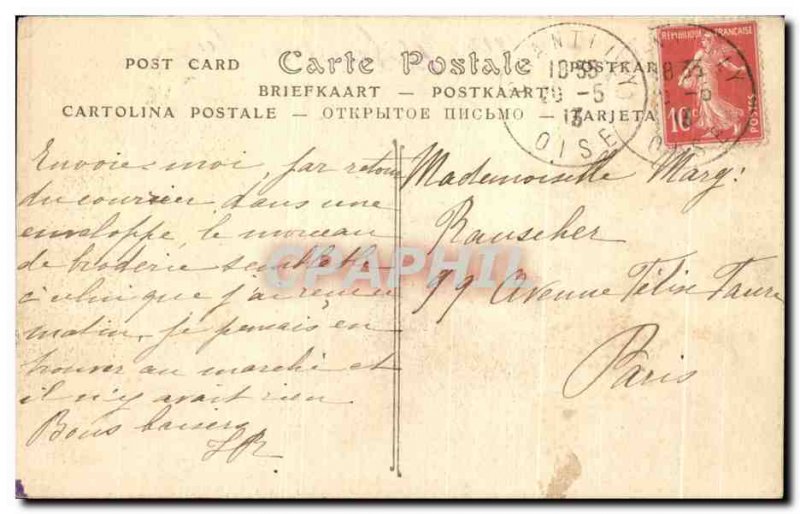 POST CARD Carte Postale POSTKAR
BRIEFKAART — POSTKAART
CARTOLINA POSTALE — ОТКРЫТОЕ ПИСЬМО — TARJETA
Envoie-moi, par retour
du courrier, dans une
enveloppe, le morceau
de broderie semblable
à celui que j'ai reçu ce
matin. Je pensais en
trouver au marché et
il n'y avait rien
Bons baisers
Mademoiselle Marg:
Rauscher
99 Avenue Félix Faure
Paris
RÉPUBLIQUE FRANÇAISE
10c
POSTES
10-35
20 -5
OISE
CPAPHIL